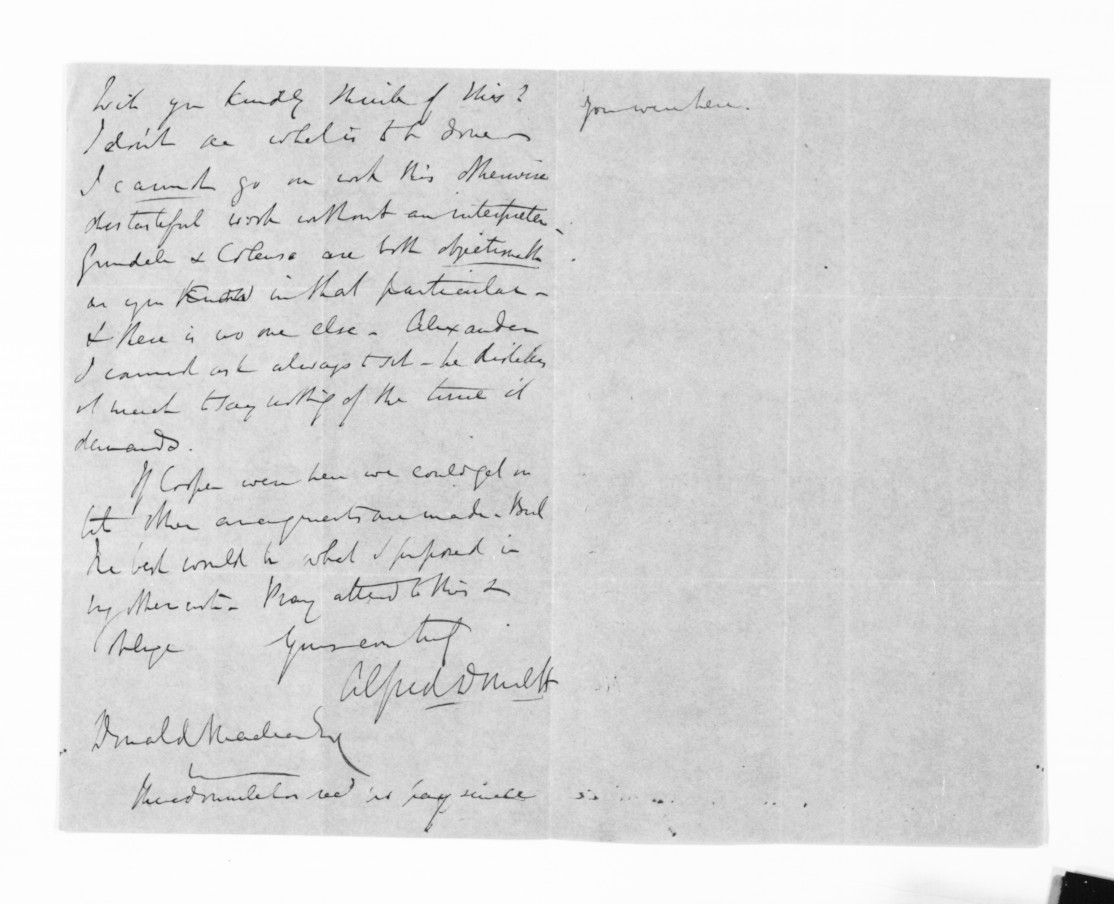 Will you kindly think of this?
I don't see what is to be done
I cannot go on with this otherwise
distasteful work without an interpreter -
Grindell & Colenso are both objectionable
as you know in that particular -
& there is no one else - Alexander
I cannot ask always to sit - he dislikes
it much to say nothing of the time it
demands.
If Cooper were here we could get on
but other arrangements are made - But
the best would be what I proposed in
my other note - Pray attend to this &
oblige Yours ever truly
Alfred Domett
Donald McLean Esq
has rec'd no pay since
you were here.